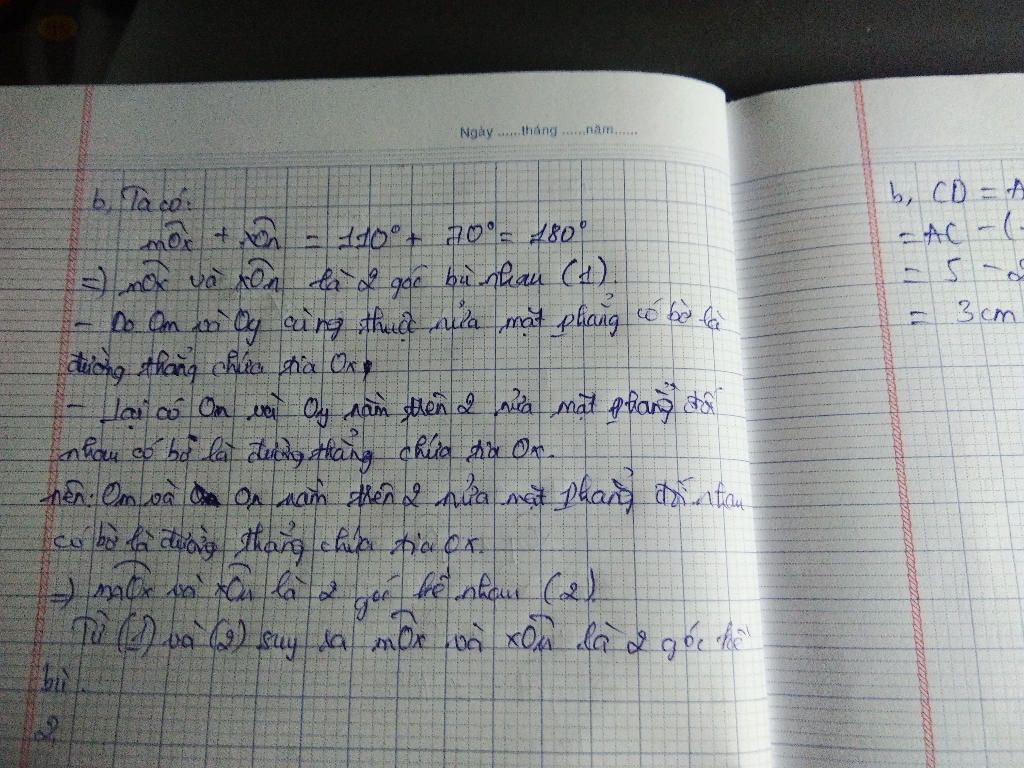 Ngày ......tháng ......năm......
b, Ta có:
mÔx + xÔn = 110° + 70° = 180°
=> mÔx và xÔn là 2 góc bù nhau (1).
- Do Om và Oy cùng thuộc nửa mặt phẳng có bờ là
đường thẳng chứa tia Ox,
- Lại có Om và Oy nằm trên 2 nửa mặt phẳng đối
nhau có bờ là đường thẳng chứa tia Ox.
nên: Om và On nằm trên 2 nửa mặt phẳng đối nhau
có bờ là đường thẳng chứa tia Ox.
=> mÔx và xÔn là 2 góc kề nhau (2)
Từ (1) và (2) suy ra mÔx và xÔn là 2 góc kề
bù.
2
b, CD = A
= AC - (
= 5 - 2
= 3cm